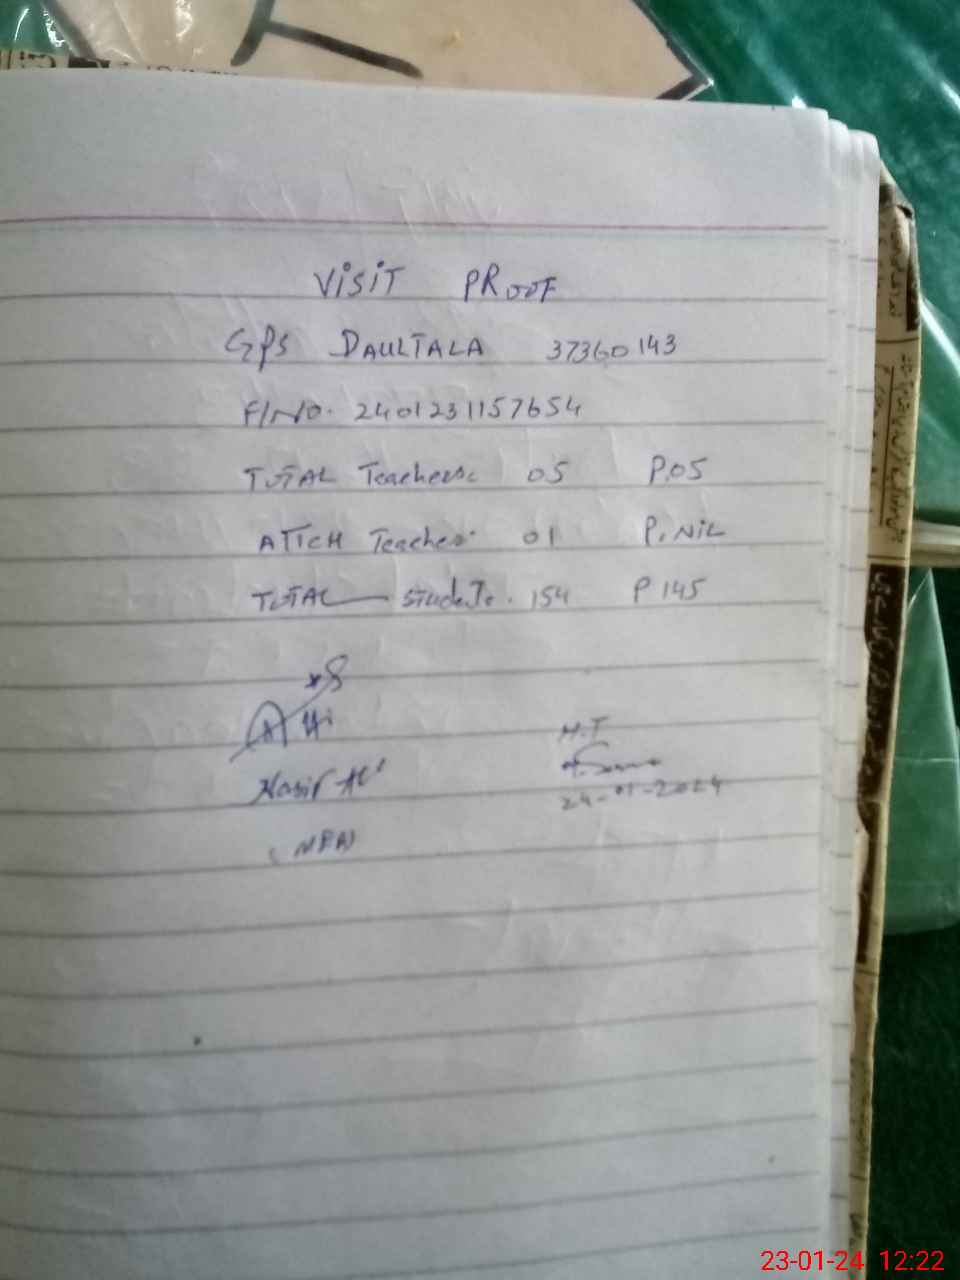 VISIT PROOF
GPS DAULTALA 37360143
F/NO. 2401231157654
TOTAL Teachers. 05 P.05
ATTCH Teacher 01 P. NIL
TOTAL Students. 154 P 145
H.T
Nasir Ali
24-01-2024
23-01-24 12:22